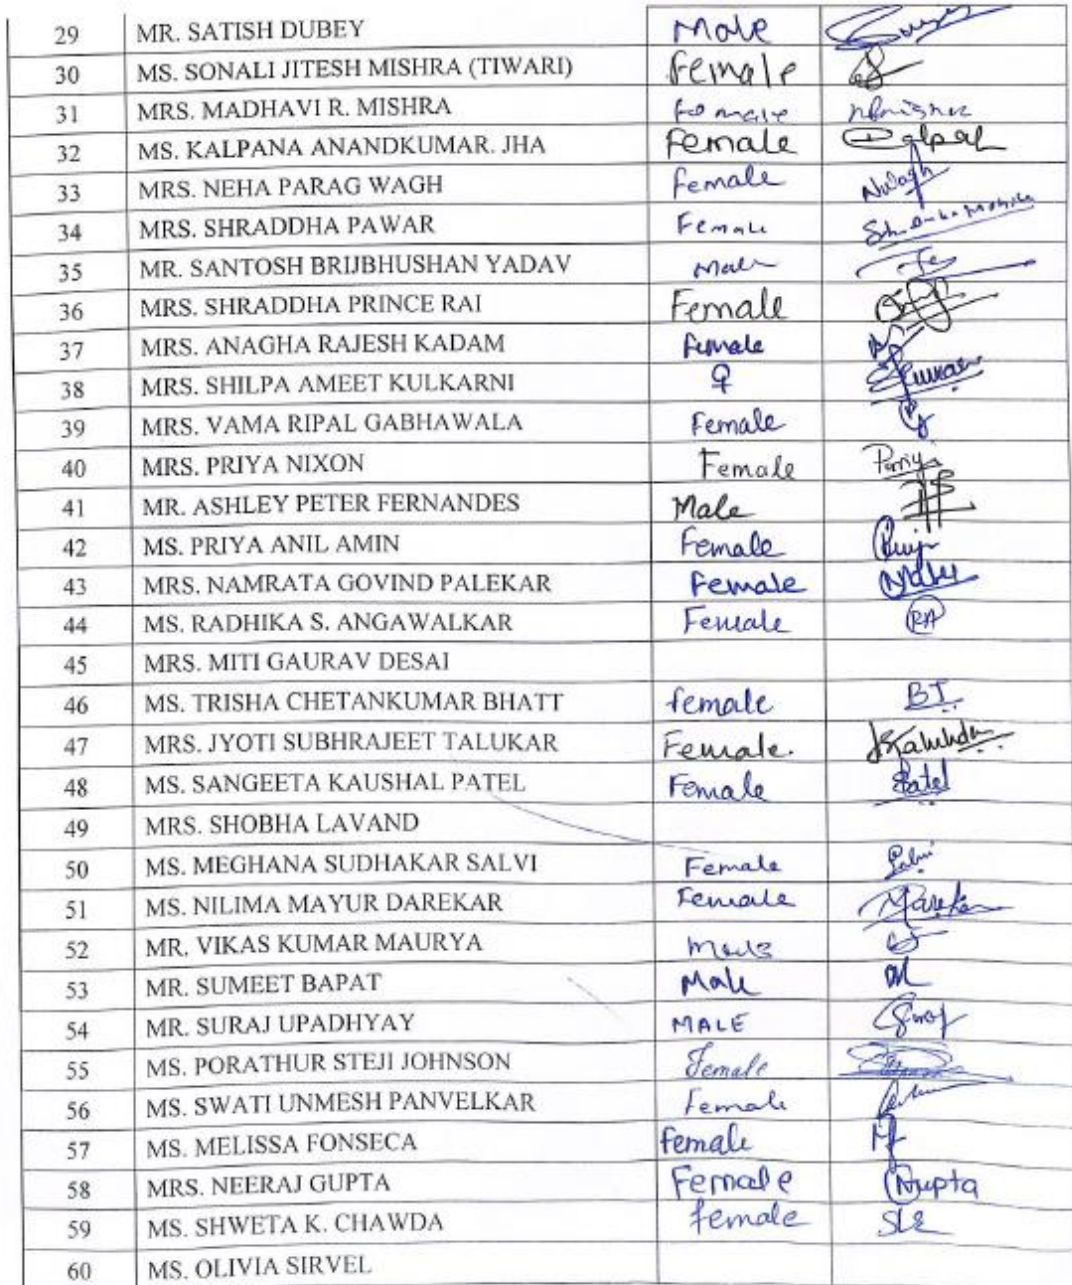 29 MR. SATISH DUBEY Male
30 MS. SONALI JITESH MISHRA (TIWARI) Female
31 MRS. MADHAVI R. MISHRA female
32 MS. KALPANA ANANDKUMAR. JHA Female
33 MRS. NEHA PARAG WAGH Female NWagh
34 MRS. SHRADDHA PAWAR Female
35 MR. SANTOSH BRIJBHUSHAN YADAV Male
36 MRS. SHRADDHA PRINCE RAI Female
37 MRS. ANAGHA RAJESH KADAM Female
38 MRS. SHILPA AMEET KULKARNI ♀
39 MRS. VAMA RIPAL GABHAWALA Female
40 MRS. PRIYA NIXON Female
41 MR. ASHLEY PETER FERNANDES Male
42 MS. PRIYA ANIL AMIN Female
43 MRS. NAMRATA GOVIND PALEKAR Female
44 MS. RADHIKA S. ANGAWALKAR Female RA
45 MRS. MITI GAURAV DESAI
46 MS. TRISHA CHETANKUMAR BHATT female BT
47 MRS. JYOTI SUBHRAJEET TALUKAR Female.
48 MS. SANGEETA KAUSHAL PATEL Female Patel
49 MRS. SHOBHA LAVAND
50 MS. MEGHANA SUDHAKAR SALVI Female
51 MS. NILIMA MAYUR DAREKAR Female
52 MR. VIKAS KUMAR MAURYA
53 MR. SUMEET BAPAT Male
54 MR. SURAJ UPADHYAY MALE
55 MS. PORATHUR STEJI JOHNSON Female
56 MS. SWATI UNMESH PANVELKAR Female
57 MS. MELISSA FONSECA female
58 MRS. NEERAJ GUPTA Female Gupta
59 MS. SHWETA K. CHAWDA female
60 MS. OLIVIA SIRVEL